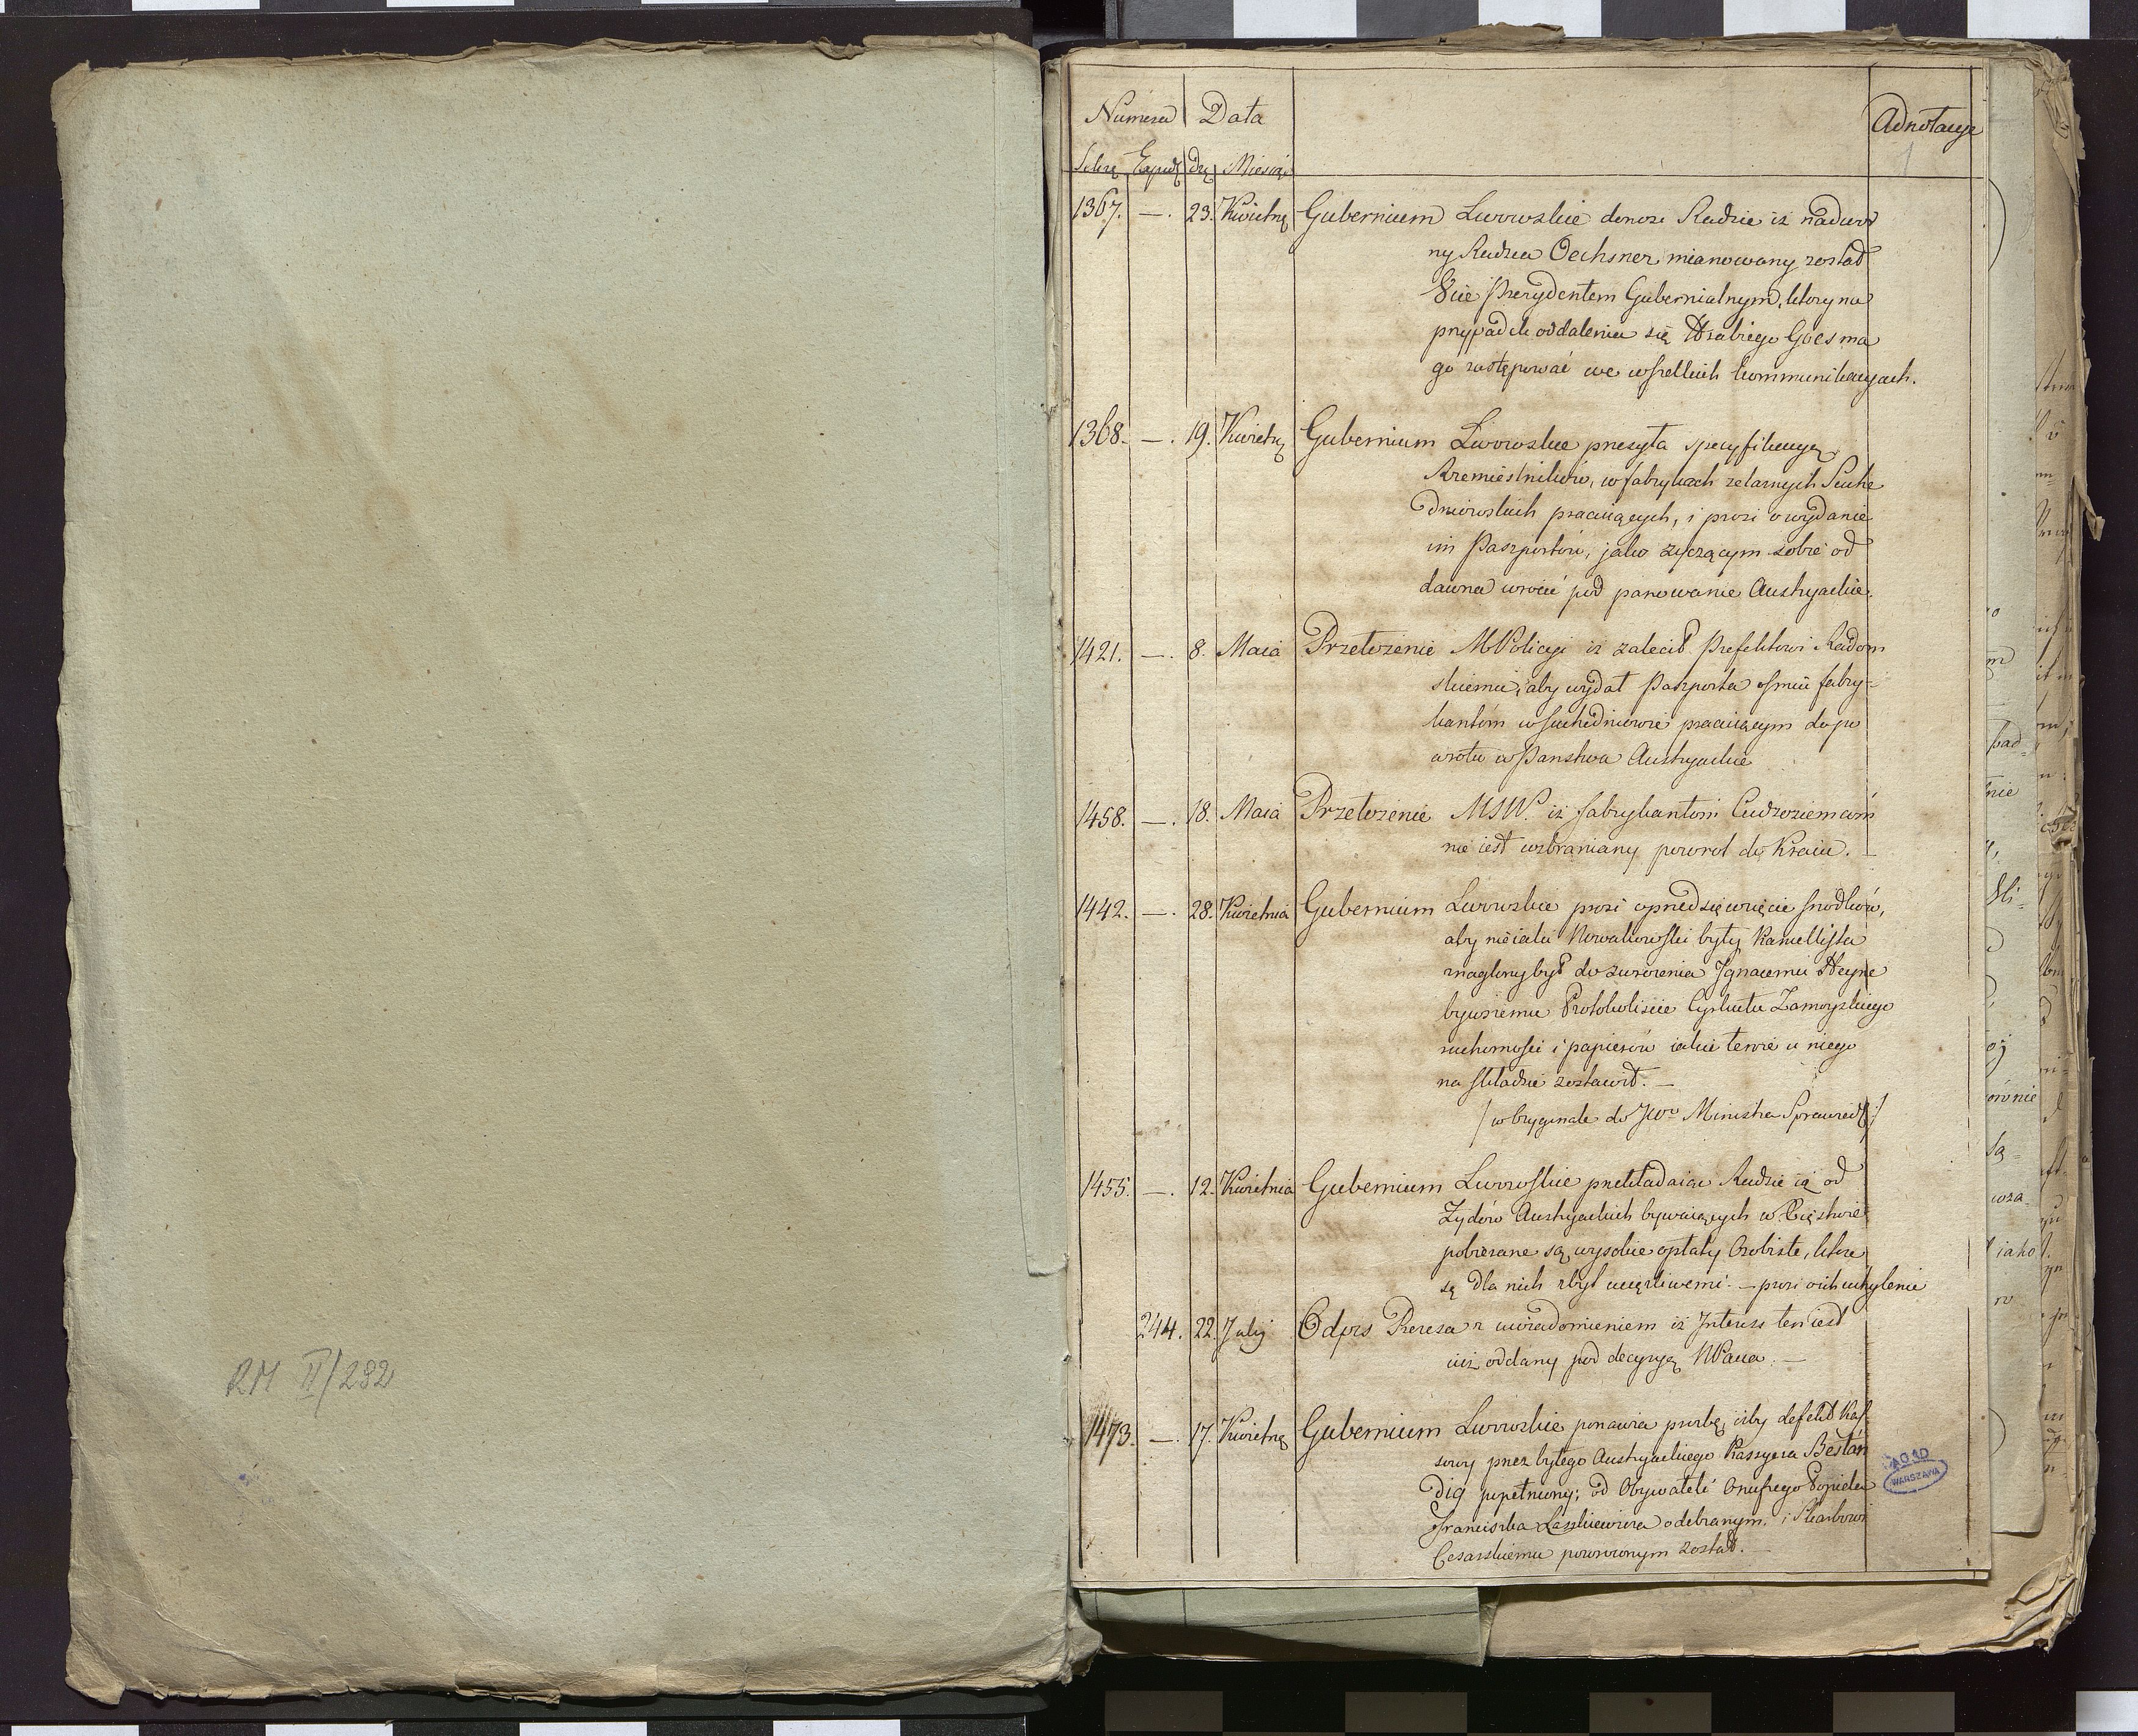 RM II/282
Numera Data Adnotacye
1
Sekrę Exped dzę Miesiąc
1367. —. 23. Kwietnę Gubernium Lwowskie donosi Radzie iż nadwor
ny Radzca Oechsner mianowany został
Vice Prezydentem Gubernialnym, ktory na
przypadek oddalenia się Hrabiego Goes ma
go zastępować we wszelkich kommunikacyach.
1368. —. 19. Kwietnę Gubernium Lwowskie przesyła specyfikacyą
Rzemieslnikow, w fabrykach zelaznych Suche
dniowskich pracuiących, i prosi o wydanie
im Paszportow, jako zyczącym sobie od
dawna wrocić pod panowanie Austryackie.
1421. —. 8. Maia Przełozenie MPolicyi iż zalecił Prefektowi Radom
skiemu, aby wydał Paszporta osmiu fabry=
kantom w Suchedniowie pracuiącym do po
wrotu w Panstwa Austryackie
1458. —. 18. Maia Przełozenie MSW. iż fabrykantom Cudzoziemcom
nie iest wzbraniany powrot do Kraiu. —
1442. —. 28. Kwietnia Gubernium Lwowskie prosi o przedsięwzięcie srodkow,
aby nieiaki Nowakowski były Kancellista
znaglony był do zwrocenia Ignacemu Heyne
bywszemu Protokoliscie Cyrkułu Zamoyskiego
ruchomosci i papierow iakie tenże u niego
na składzie zostawił. —
/ w Oryginale do JWo Ministra Sprawied /
1455. —. 12. Kwietnia Gubernium Lwowskie przekładaiąc Radzie iż od
Zydow Austryackich bywaiących w Xięstwie
pobierane są wysokie opłaty Osobiste, ktore
są dla nich zbyt uciązliwemi. — prosi o ich uchylenie
244. 22. July Odpis Prezesa z uwiadomieniem iż Interess ten iest
iuż oddany pod decyzyą NPana. —
1473. —. 17. Kwietnę Gubernium Lwowskie ponawia prozbę, iżby defekt Kas
sowy przez byłego Austryackiego Kassyera Bestan
dig popełniony; od Obywateli Onufrego Popiela
Franciszka Laszkiewicza odebranym i Skarbowi
Cesarskiemu powroconym został. —
AGAD
WARSZAWA